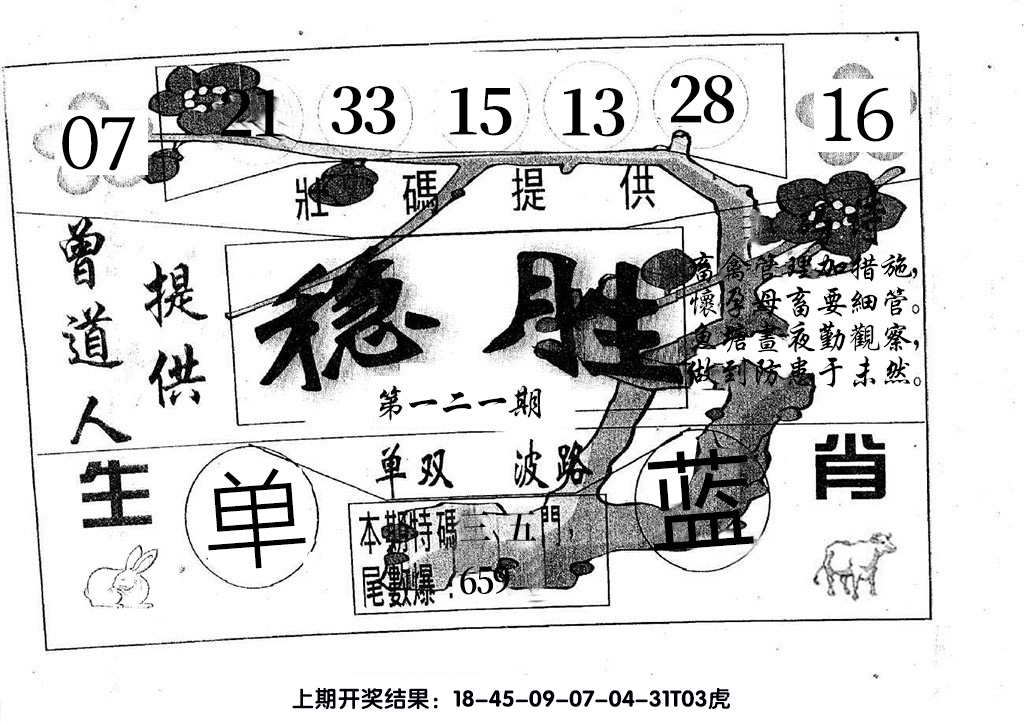 07 21 33 15 13 28 16
壯碼提供
曾道人
提供
稳胜
第一二一期
特
畜禽管理加措施，
懷孕母畜要細管。
魚塘晝夜勤觀察，
做到防患于未然。
单双 波路
生肖
单
蓝
本期特碼三、五門，
尾數爆：659
上期开奖结果：18-45-09-07-04-31T03虎